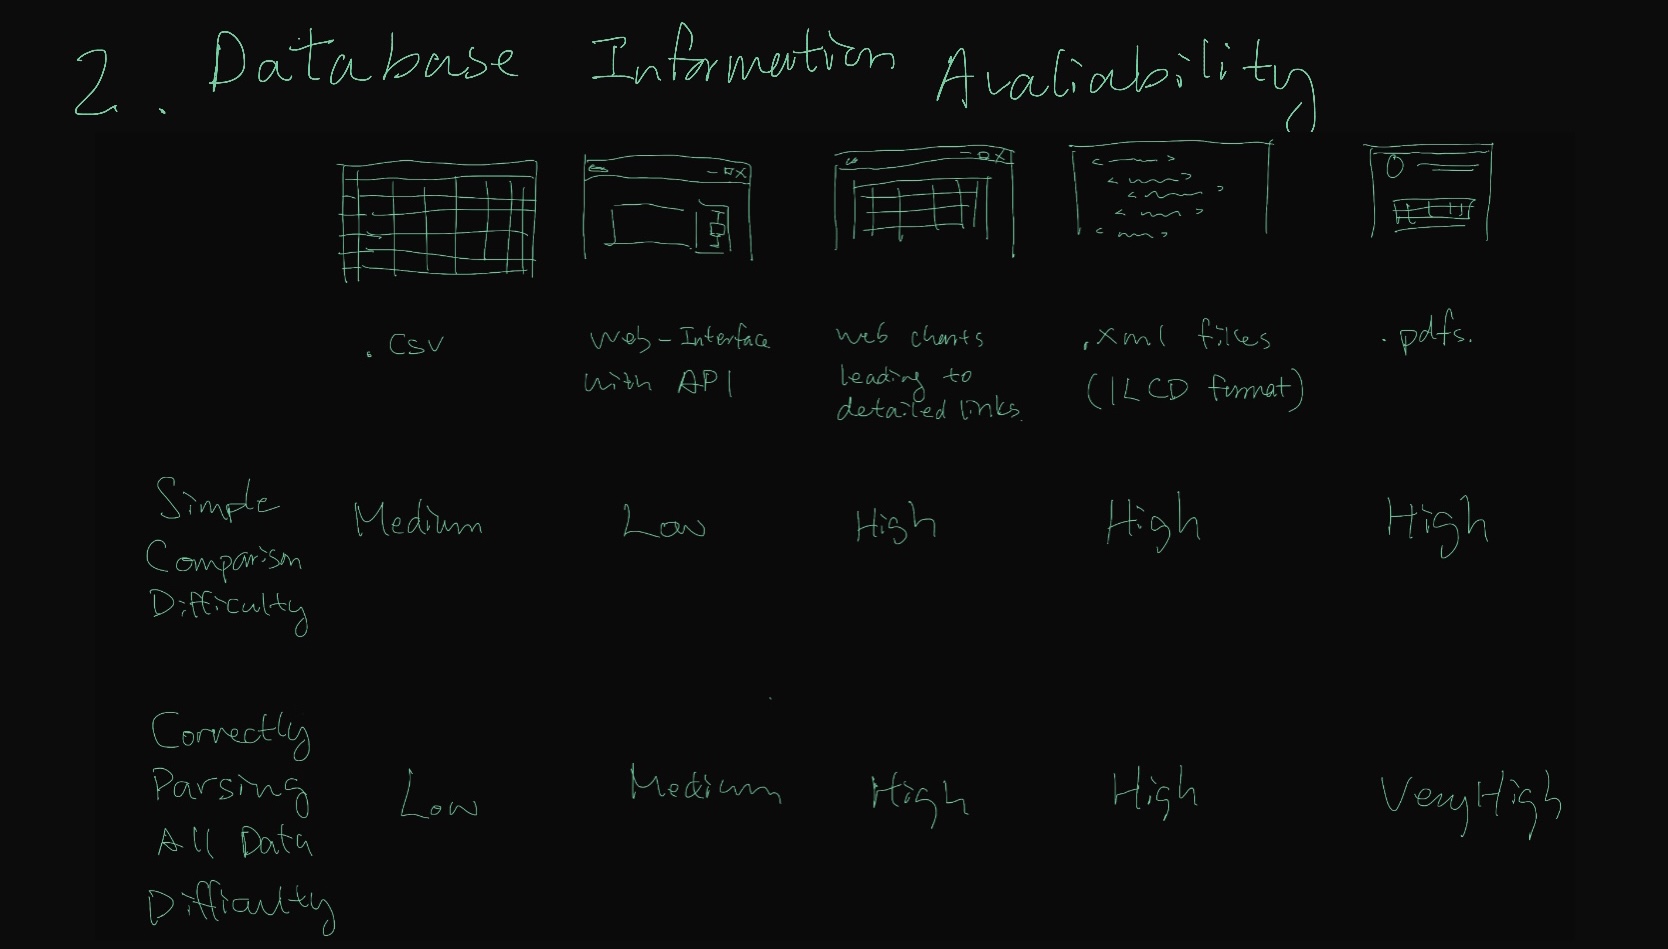 2. Database Information Avaliability
.csv
Web-Interface
with API
web charts
leading to
detailed links.
.xml files
(ILCD format)
.pdfs.
Simple
Comparison
Difficulty
Medium
Low
High
High
High
Correctly
Parsing
All Data
Difficulty
Low
Medium
High
High
Very High